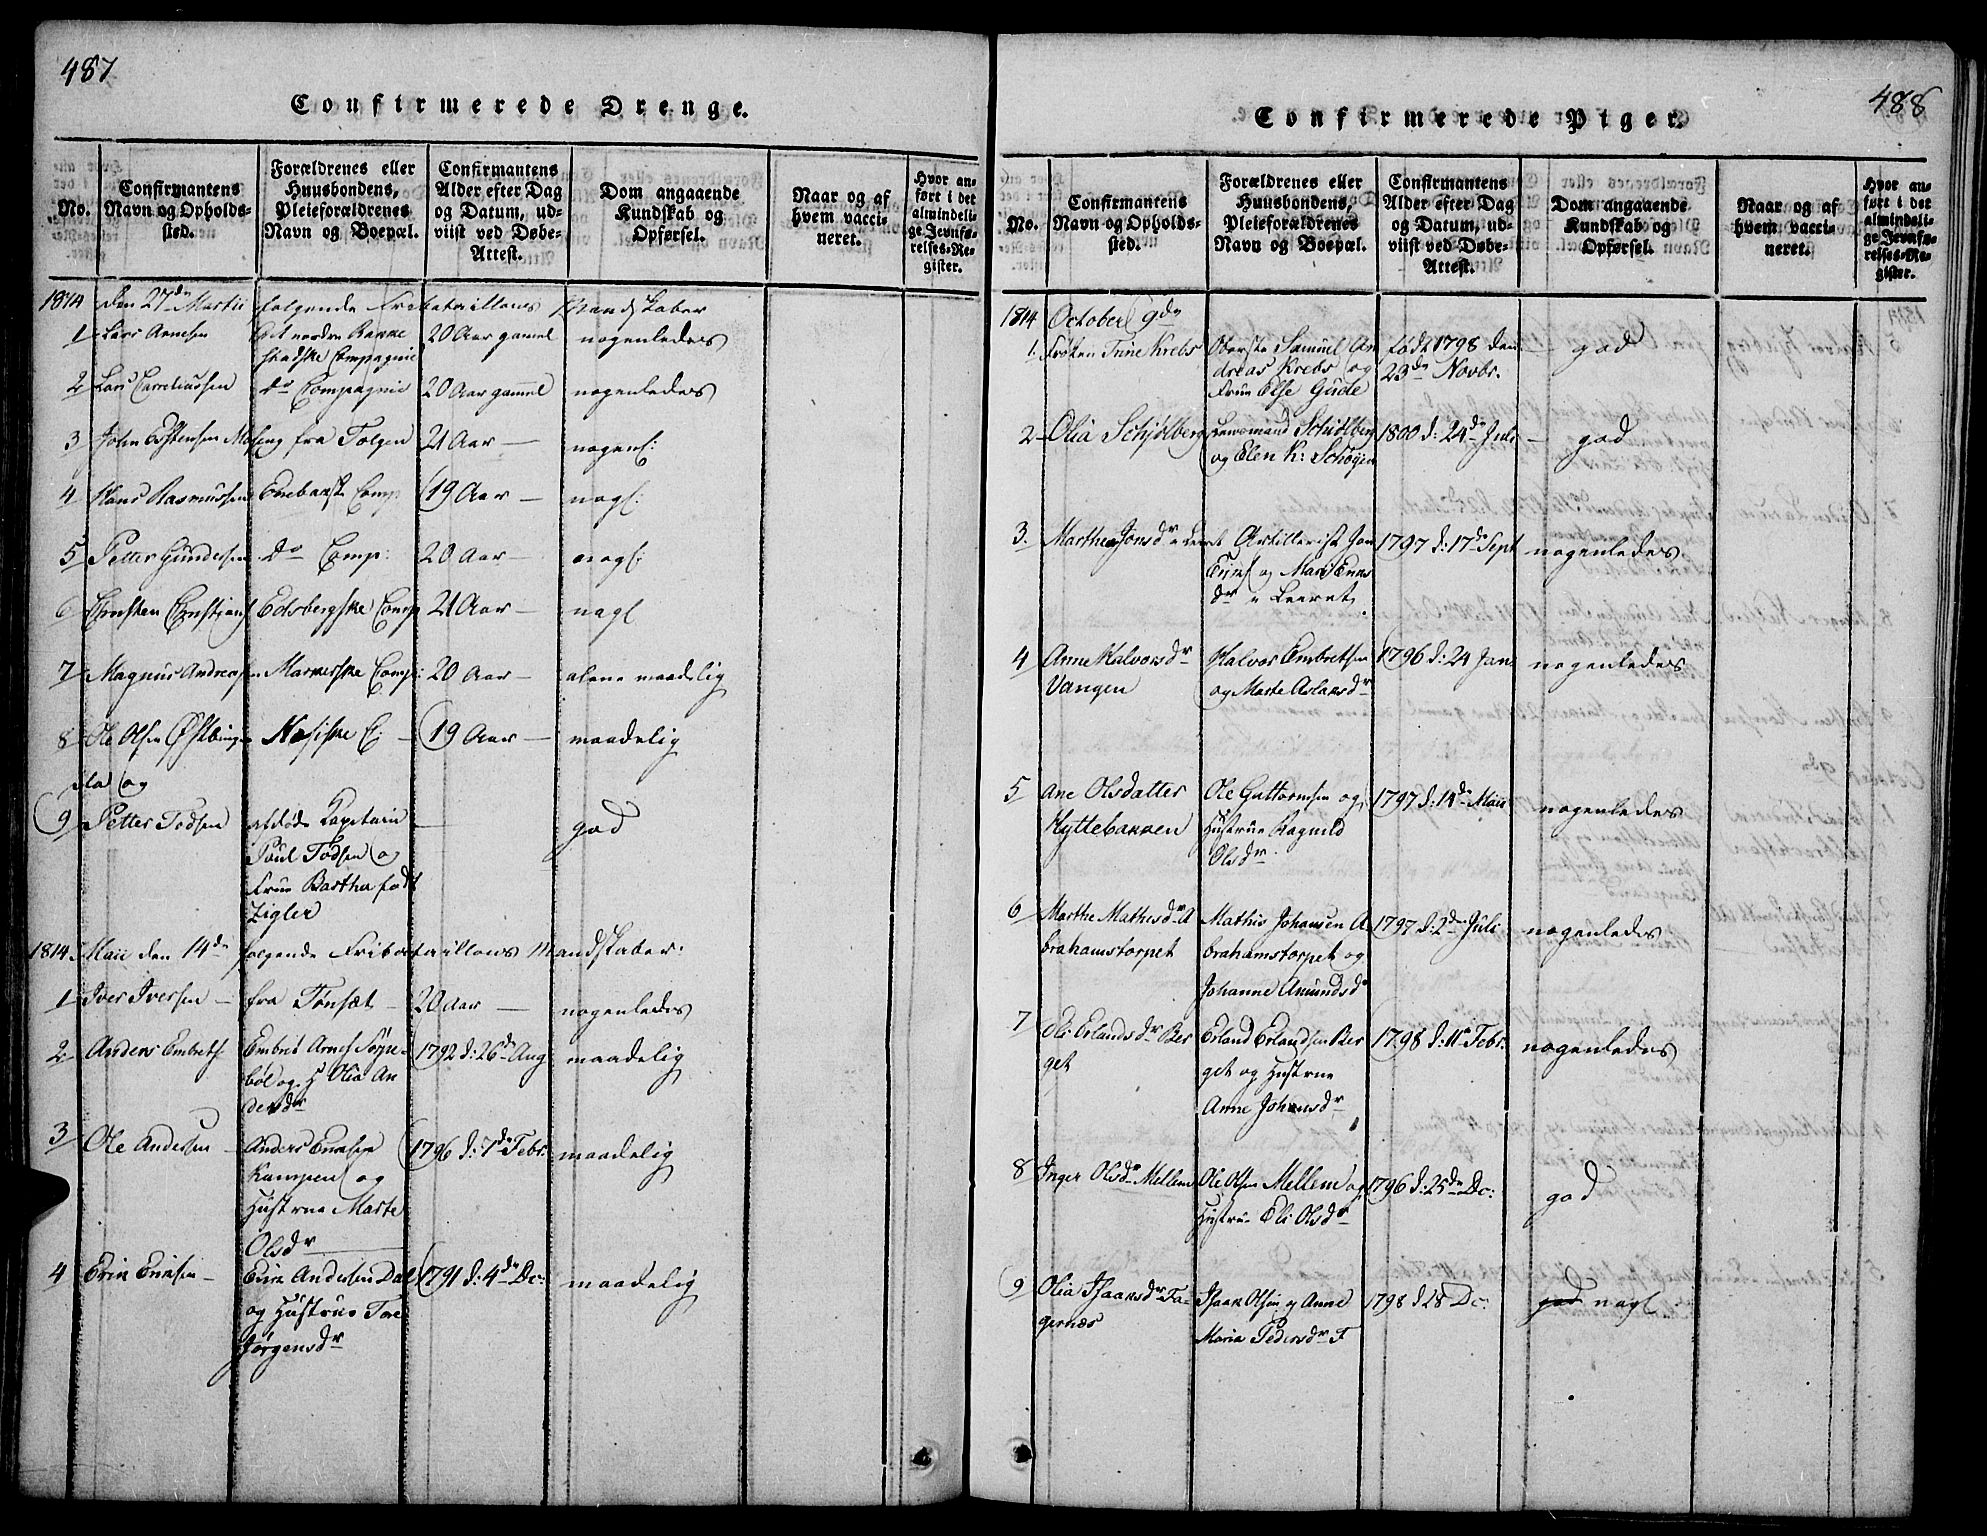 487
Confirmerede Drenge.
No.
Confirmantens
Navn og Opholds-
sted.
Forældrenes eller
Huusbondens,
Pleieforældrenes
Navn og Boepæl.
Confirmantens
Alder efter Dag
og Datum, ud-
viist ved Døbe-
Attest.
Dom angaaende
Kundskab og
Opførsel.
Naar og af
hvem vacci-
neret.
Hvor an-
ført i det
almindeli-
ge Jevnfø-
relses-Re-
gister.
1814 den 27de Martii følgende Fribataillons Mandskaber
1 Lars Arnesen
nordre
Compagnie
20 Aar gamel
nogenledes
2 Lars
do Compagnie
20 Aar gammel
nogenledes
3 John Estensen fra Tolgen
21 Aar —
nogenl:
4 Hans Rasmussen
Comp:
19 Aar —
nogl:
5 Petter Gundersen
do Comp:
20 Aar —
nogl:
6 Christen Christians
Edsbergske Comp
21 Aar —
nogl
7 Magnus Andersen
Markerske Comp:
20 Aar —
alene maadelig
8 Ole Olsen
C: —
19 Aar —
maadelig
9 Petter Todsen
afdøde Kapitain
Poul Todsen og
Frue Barthe født
Zigler
god
1814 Maii den 14de følgende Fribataillons Mandskaber:
1 Iver Iversen —
fra Tønset —
20 Aar —
nogenledes
2 Anders Embrets.
Embret Arnes.
og H Olia An
dersdr
1792 d: 26de Aug
maadelig
3 Ole Andersen —
Anders
Kampen og
Hustrue Marte
Olsdr
1796 d: 7de Febr:
maadelig
4 Erik Eriksen —
Erik Andersen Dal
og Hustrue
Jørgensdr
1791 d: 4de Dc:
maadelig
488
Confirmerede Piger.
No.
Confirmantens
Navn og Opholds-
sted.
Forældrenes eller
Huusbondens,
Pleieforældrenes
Navn og Boepæl.
Confirmantens
Alder efter Dag
og Datum, ud-
viist ved Døbe-
Attest.
Dom angaaende
Kundskab og
Opførsel.
Naar og af
hvem vacci-
neret.
Hvor an-
ført i det
almindeli-
ge Jevnfø-
relses-Re-
gister.
1814 October 9de
1. Frøken Trine Krebs
Oberste Samuel An
dreas Krebs og
Frue Else Gude
født 1798 den
23de Novbr.
— god
2 Olia Schjølberg
Lensmand Schiølberg
og Elen K: Schøyen
1800 d: 24de Juli
— god
3. Marthe Jonsdr
Artillerist Jon
og Mari
dr
1797 d: 17de Sept
nogenledes
4 Anne Halvorsdr
Vangen
Halvor Embretsen
og Marte Aslaksdr
1796 d: 24 Jan
nogenledes
5 Ane Olsdatter
Hyttebakken
Ole Guttormsen og
Hustrue Ragnild
Olsdr.
1797 d: 14de Maii
nogenledes
6 Marthe Mathesdr A
brahamstorpet
Mathis Johansen A
brahamstorpet og
Johanne Amundsdr
1797 d: 2de Juli
nogenledes
7 Eli Erlandsdr Ber
get
Erland Erlandsen Ber
get og Hustrue
Anne Johansdr
1798 d: 11te Febr:
nogenledes
8 Inger Olsdr Mellem
Ole Olsen Mellem og
Hustrue Eli Olsdr
1796 d: 25de Dc:
god
9 Olia Isaaksdr Fa-
gernæs
Isaak Olsen og Anne
Maria Pedersdr F
1798 d 18 Dc:
god nogl